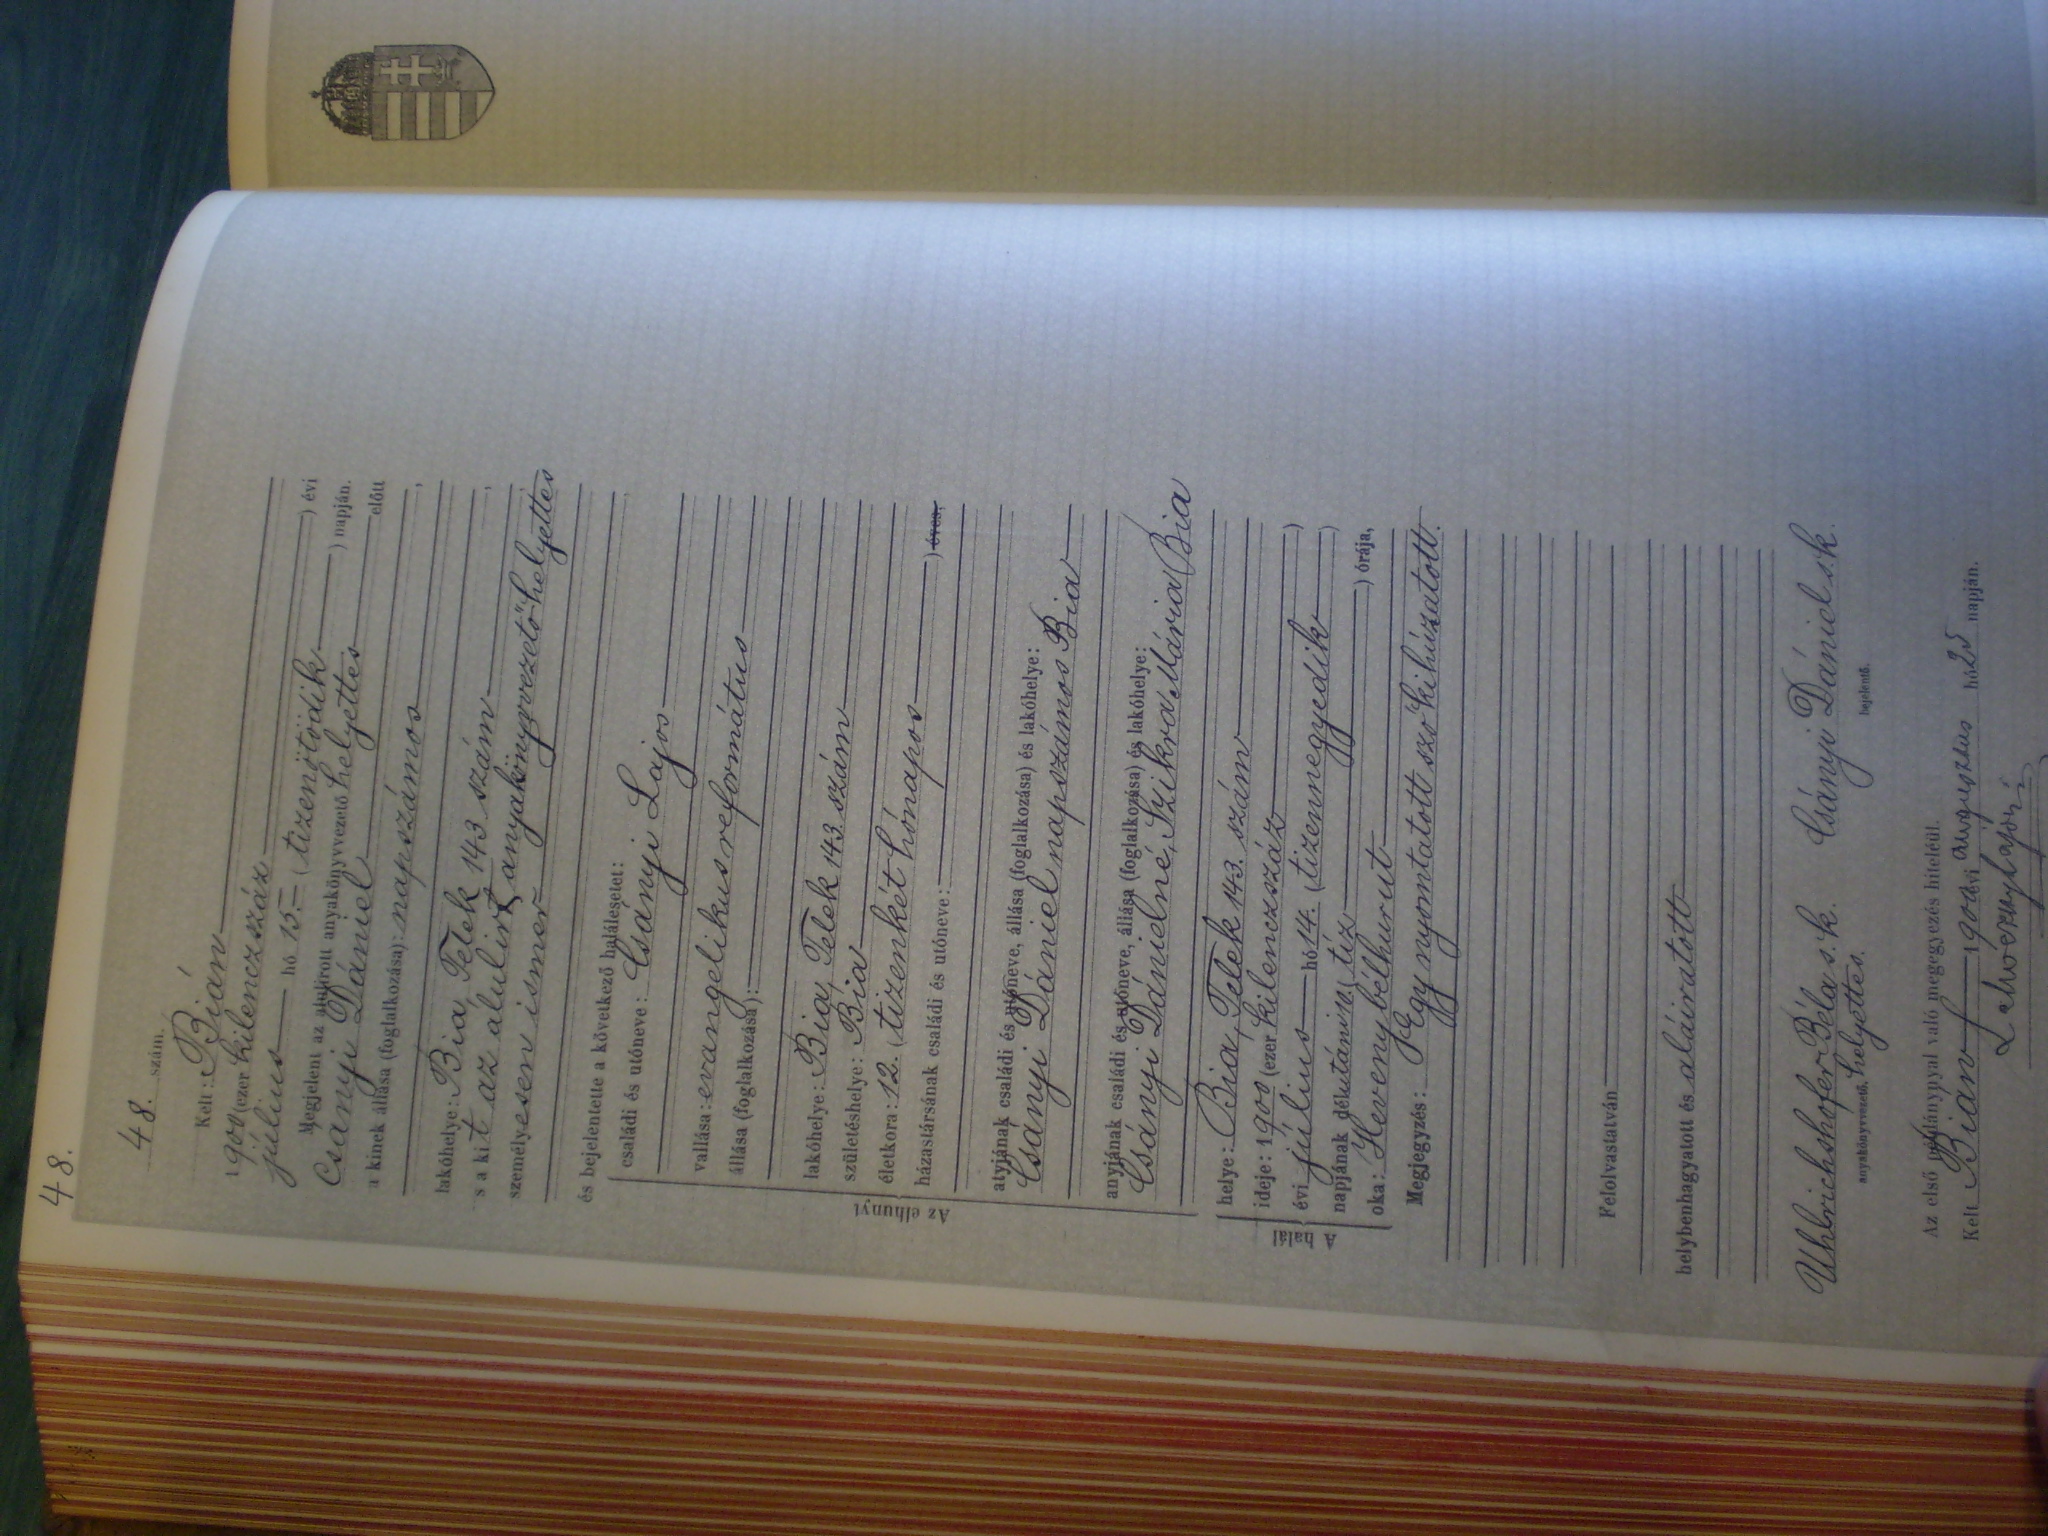 48.
48. szám.
Kelt: Bián
1900 (ezer kilenczszáz) évi
július hó 15. (tizenötödik) napján.
Megjelent az alulirott anyakönyvvezető helyettes előtt
Csányi Dániel
a kinek állása (foglalkozása): napszámos,
lakóhelye: Bia, Telek 143 szám,
s a kit az alulirt anyakönyvvezető helyettes
személyesen ismer
és bejelentette a következő halálesetet:
Az elhunyt
családi és utóneve: Csanyi Lajos
vallása: evangelikus református
állása (foglalkozása):
lakóhelye: Bia, Telek 143 szám
születéshelye: Bia
életkora: 12. (tizenkét hónapos) éves,
házastársának családi és utóneve:
atyjának családi és utóneve, állása (foglalkozása) és lakóhelye:
Csányi Dániel napszámos Bia
anyjának családi és utóneve, állása (foglalkozása) és lakóhelye:
Csányi Dánielné, Szikra Mária Bia
A halál
helye: Bia, Telek 143. szám
ideje: 1900 (ezer kilenczszáz)
évi július hó 14. (tizennegyedik)
napjának délutánin (tíz) órája,
oka: Heveny bélhurut
Megjegyzés: Egy nyomtatott szó kihúzatott.
Felolvastatván
helybenhagyatott és aláiratott
Uhlrichshofer Béla s.k. Csányi Dániel s.k.
anyakönyvvezető helyettes. bejelentő.
Az első példánnyal való megegyezés hiteléül.
Kelt Bián 1900 évi augusztus hó 25 napján.